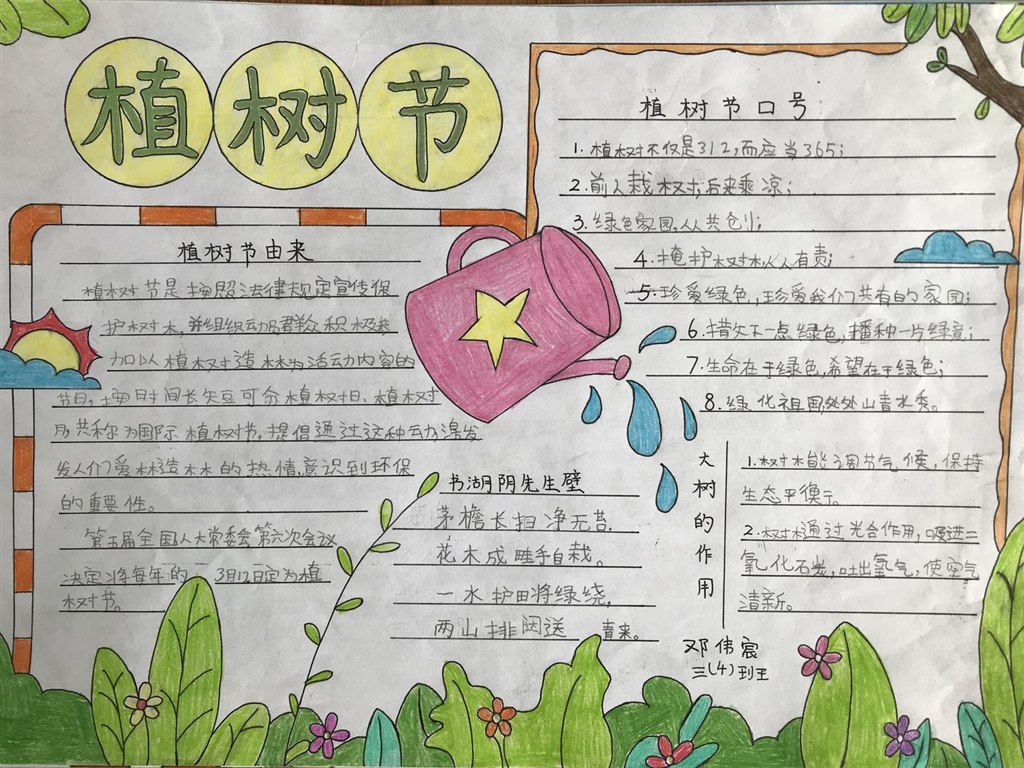 植树节
植树节由来
植树节是按照法律规定宣传保
护树木,并组织动员群众积极参
加以植树造林为活动内容的
节日,按时间长短可分植树日、植树
共称为国际植树节,提倡通过这种动激发
发人们爱林造林的热情,意识到环保
的重要性。
第五届全国人大常委会第六次会议
决定将每年的 3月12日定为植
树节。
植树节口号
1.植树不仅是312,而应当365;
2.前人栽树,后来乘凉;
3.绿色家园,人人共创;
4.掩护树林人人有责;
5.珍爱绿色,珍爱我们共有的家园;
6.措欠下一点绿色,播种一片绿意;
7.生命在于绿色,希望在于绿色;
8.绿化祖国,处处山青水秀。
书湖阴先生壁
茅檐长扫净无苔,
花木成畦手自栽。
一水护田将绿绕,
两山排闼送 青来。
大树的作用
1.树木能调节气候,保持
生态平衡。
2.树木通过光合作用,吸进二
氧化石炭,吐出氧气,使空气
清新。
邓伟宸
三(4)班